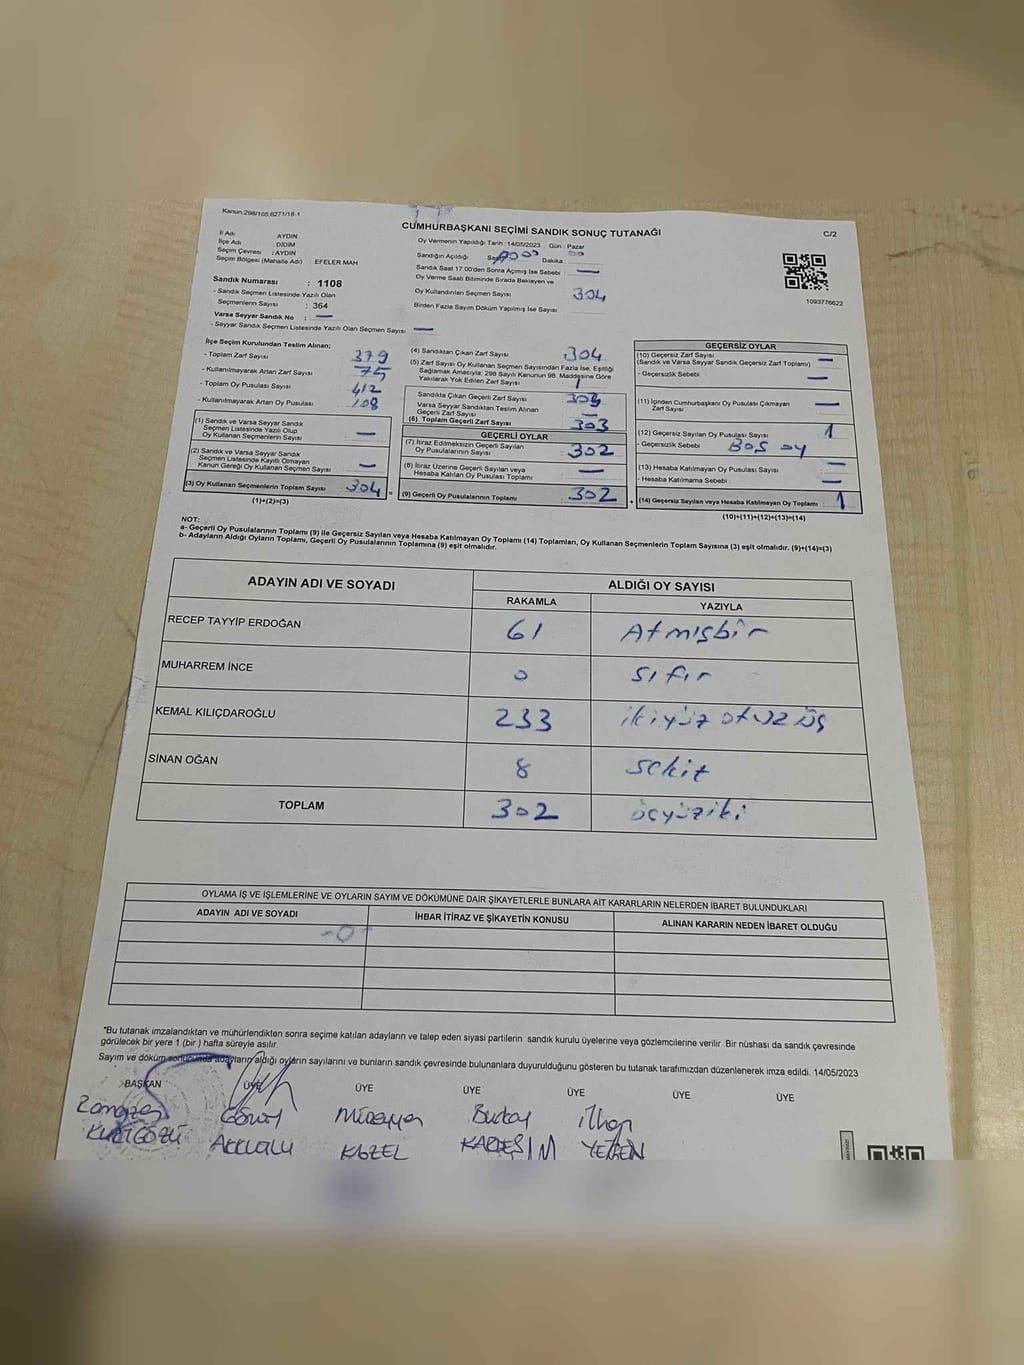 Kanun:298/105,6271/18-1
CUMHURBAŞKANI SEÇİMİ SANDIK SONUÇ TUTANAĞI
C/2
İl Adı AYDIN
İlçe Adı DİDİM
Seçim Çevresi : AYDIN
Seçim Bölgesi (Mahalle Adı) : EFELER MAH.
Oy Vermenin Yapıldığı Tarih : 14/05/2023 Gün : Pazar
Sandığın Açıldığı Dakika
Sandık Saat 17:00'den Sonra Açmış İse Sebebi : —
Oy Verme Saati Bitiminde Sırada Bekleyen ve
Oy Kullandırılan Seçmen Sayısı 304
Birden Fazla Sayım Döküm Yapılmış İse Sayısı
1093776622
Sandık Numarası : 1108
- Sandık Seçmen Listesinde Yazılı Olan
Seçmenlerin Sayısı : 364
Varsa Seyyar Sandık No : —
- Seyyar Sandık Seçmen Listesinde Yazılı Olan Seçmen Sayısı —
İlçe Seçim Kurulundan Teslim Alınan;
- Toplam Zarf Sayısı 379
- Kullanılmayarak Artan Zarf Sayısı 75
- Toplam Oy Pusulası Sayısı 412
- Kullanılmayarak Artan Oy Pusulası 108
(1) Sandık ve Varsa Seyyar Sandık
Seçmen Listesinde Yazılı Olup
Oy Kullanan Seçmenlerin Sayısı —
(2) Sandık ve Varsa Seyyar Sandık
Seçmen Listesinde Kayıtlı Olmayan
Kanun Gereği Oy Kullanan Seçmen Sayısı —
(3) Oy Kullanan Seçmenlerin Toplam Sayısı 304
(1)+(2)=(3)
(4) Sandıktan Çıkan Zarf Sayısı 304
(5) Zarf Sayısı Oy Kullanan Seçmen Sayısından Fazla İse, Eşitliği
Sağlamak Amacıyla; 298 Sayılı Kanunun 98. Maddesine Göre
Yakılarak Yok Edilen Zarf Sayısı
Sandıkta Çıkan Geçerli Zarf Sayısı
Varsa Seyyar Sandıktan Teslim Alınan
Geçerli Zarf Sayısı —
(6) Toplam Geçerli Zarf Sayısı 303
GEÇERLİ OYLAR
(7) İtiraz Edilmeksizin Geçerli Sayılan
Oy Pusulalarının Sayısı 302
(8) İtiraz Üzerine Geçerli Sayılan veya
Hesaba Katılan Oy Pusulası Toplamı —
(9) Geçerli Oy Pusulalarının Toplamı 302
GEÇERSİZ OYLAR
(10) Geçersiz Zarf Sayısı
(Sandık ve Varsa Seyyar Sandık Geçersiz Zarf Toplamı) —
- Geçersizlik Sebebi —
(11) İçinden Cumhurbaşkanı Oy Pusulası Çıkmayan
Zarf Sayısı —
(12) Geçersiz Sayılan Oy Pusulası Sayısı 1
- Geçersizlik Sebebi BOŞ OY
(13) Hesaba Katılmayan Oy Pusulası Sayısı —
- Hesaba Katılmama Sebebi —
(14) Geçersiz Sayılan veya Hesaba Katılmayan Oy Toplamı 1
(10)+(11)+(12)+(13)=(14)
NOT:
a- Geçerli Oy Pusulalarının Toplamı (9) ile Geçersiz Sayılan veya Hesaba Katılmayan Oy Toplamı (14) Toplamları, Oy Kullanan Seçmenlerin Toplam Sayısına (3) eşit olmalıdır. (9)+(14)=(3)
b- Adayların Aldığı Oyların Toplamı, Geçerli Oy Pusulalarının Toplamına (9) eşit olmalıdır.
ADAYIN ADI VE SOYADI ALDIĞI OY SAYISI
RAKAMLA YAZIYLA
RECEP TAYYİP ERDOĞAN 61 Atmışbir
MUHARREM İNCE 0 sıfır
KEMAL KILIÇDAROĞLU 233 ikiyüz otuz üç
SİNAN OĞAN 8 sekiz
TOPLAM 302 üçyüziki
OYLAMA İŞ VE İŞLEMLERİNE VE OYLARIN SAYIM VE DÖKÜMÜNE DAİR ŞİKAYETLERLE BUNLARA AİT KARARLARIN NELERDEN İBARET BULUNDUKLARI
ADAYIN ADI VE SOYADI İHBAR İTİRAZ VE ŞİKAYETİN KONUSU ALINAN KARARIN NEDEN İBARET OLDUĞU
-0-
"Bu tutanak imzalandıktan ve mühürlendikten sonra seçime katılan adayların ve talep eden siyasi partilerin sandık kurulu üyelerine veya gözlemcilerine verilir. Bir nüshası da sandık çevresinde
görülecek bir yere 1 (bir ) hafta süreyle asılır.
Sayım ve döküm sonucunda adayların aldığı oyların sayılarını ve bunların sandık çevresinde bulunanlara duyurulduğunu gösteren bu tutanak tarafımızdan düzenlenerek imza edildi. 14/05/2023
BAŞKAN ÜYE ÜYE ÜYE ÜYE ÜYE ÜYE
İlhan